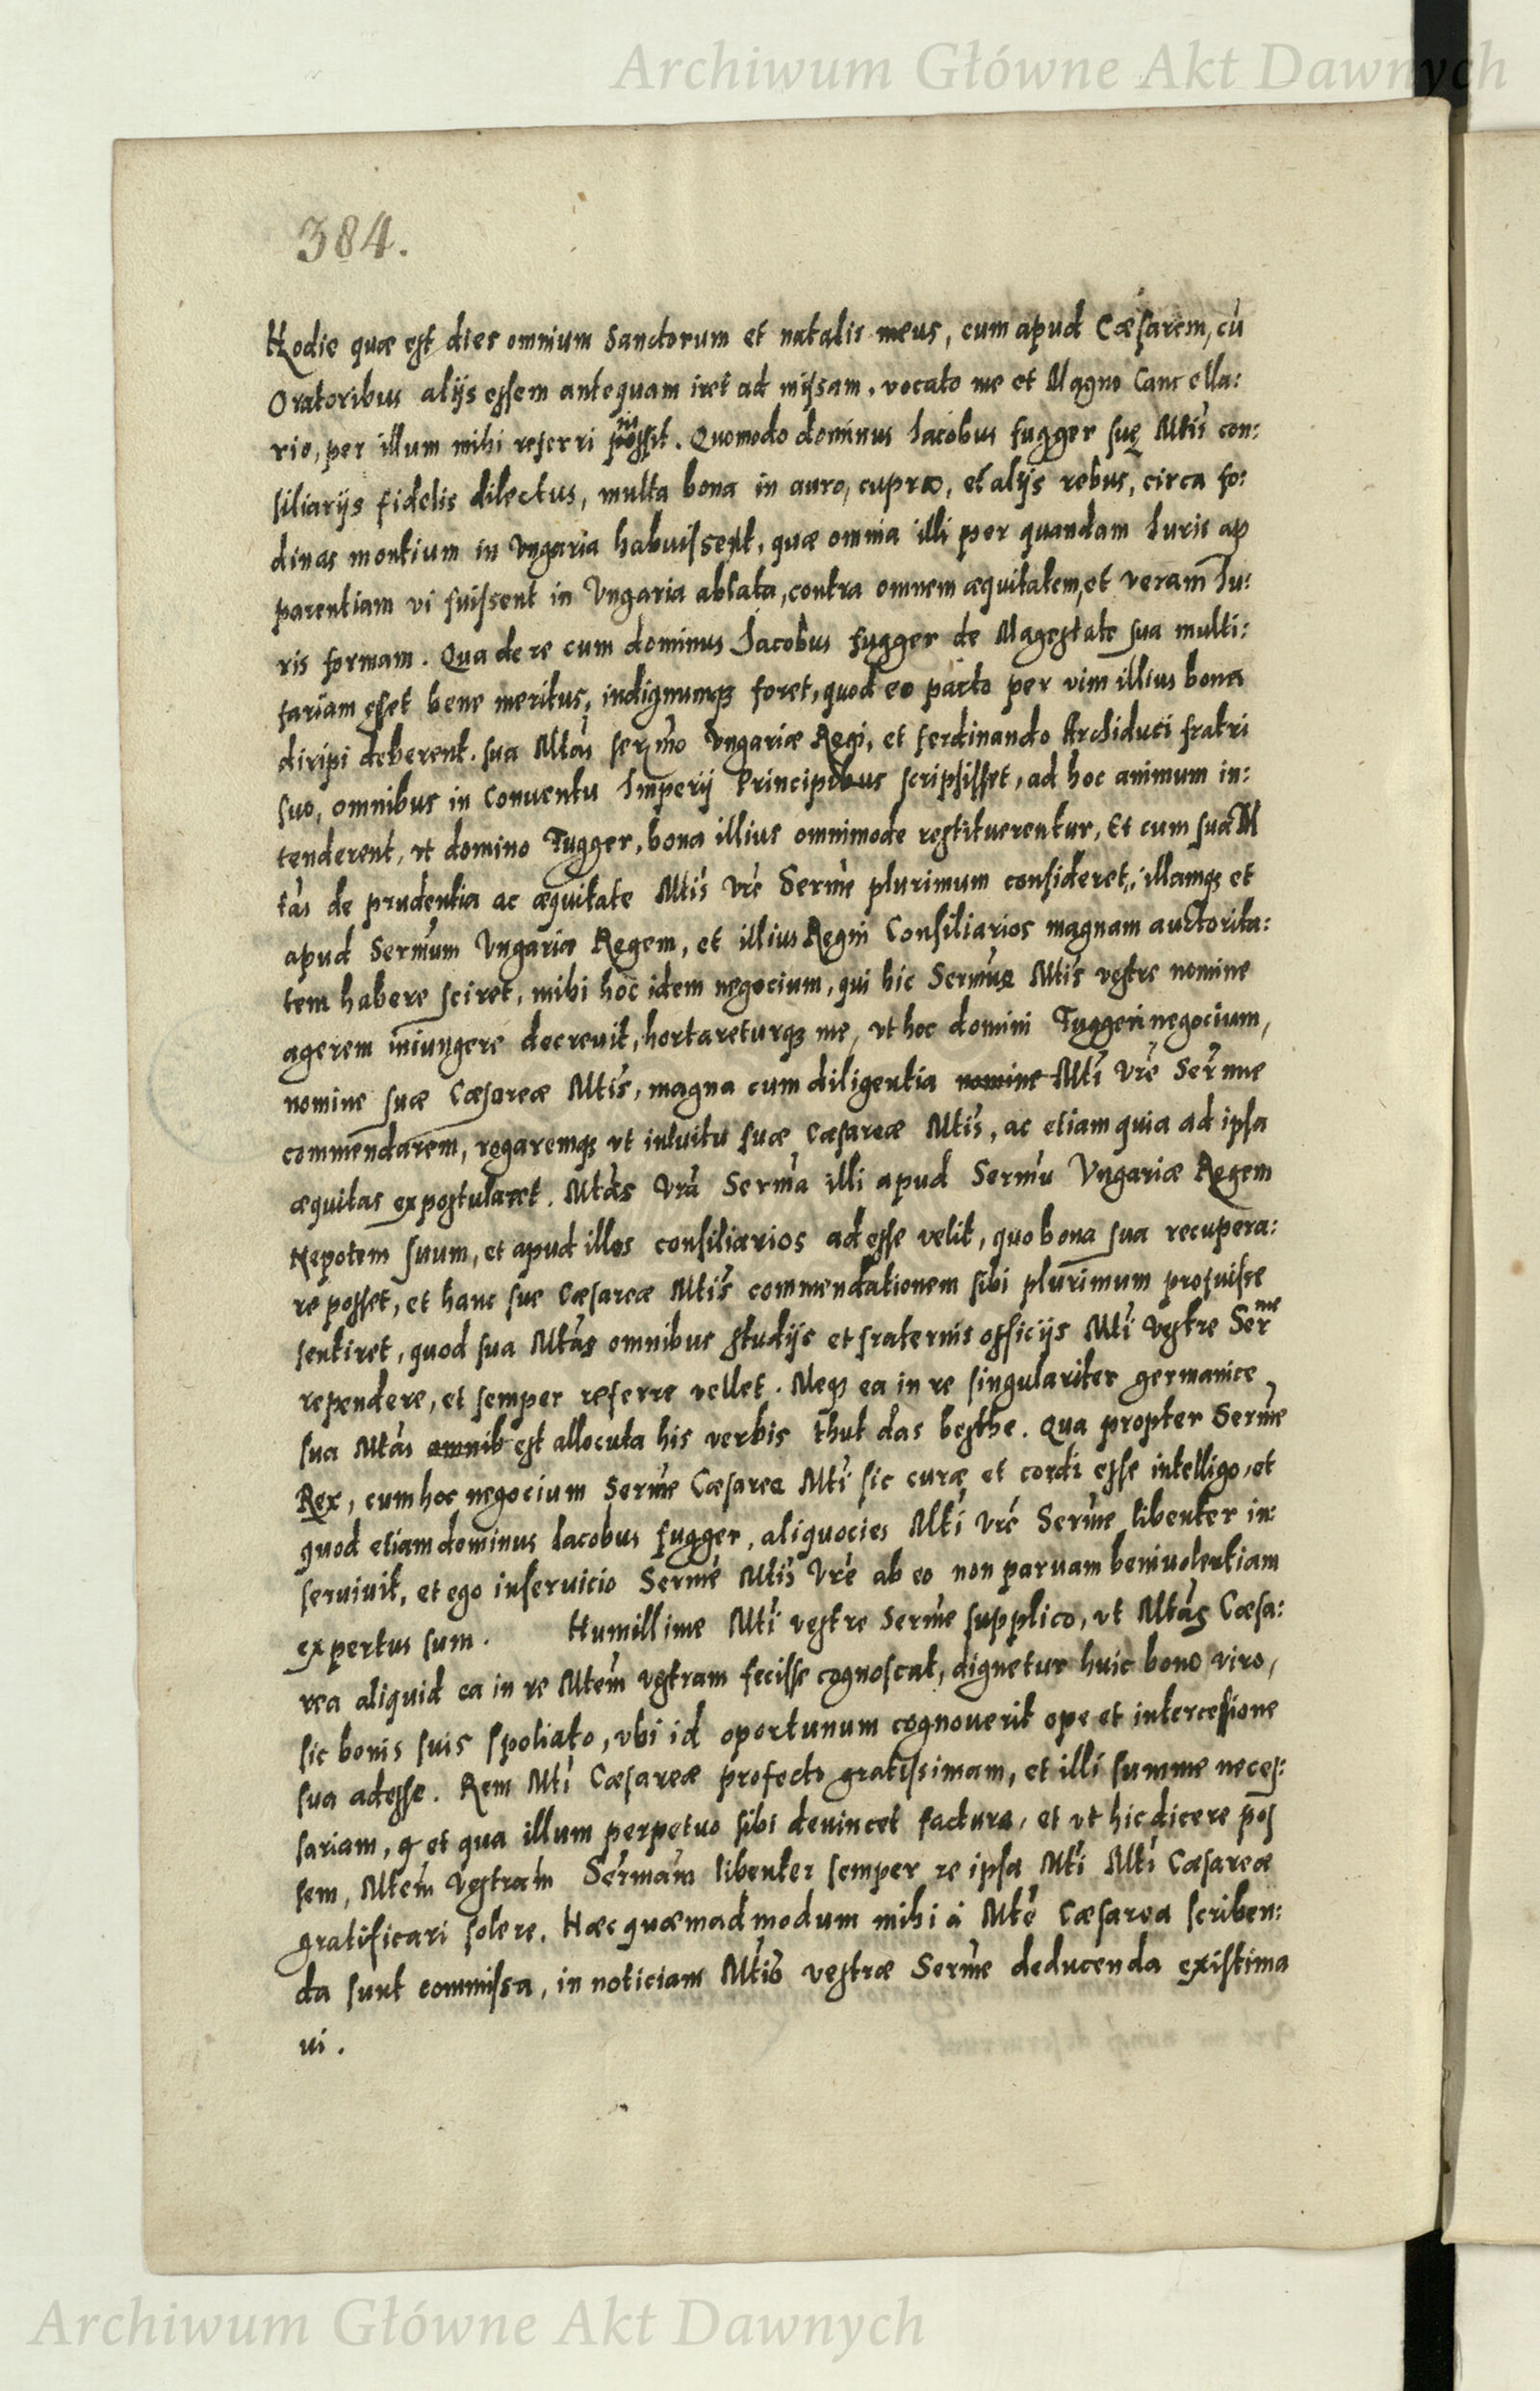 Archiwum Główne Akt Dawnych
384.
Hodie quæ est dies omnium Sanctorum et natalis meus, cum apud Cæsarem, cu
Oratoribus alijs essem antequam iret ad missam, vocato me et Magno Cancella:
rio, per illum mihi referri Quomodo dominus Iacobus fugger suę Mtis con:
siliarijs fidelis dilectus, multa bona in auro, cupro, et alijs rebus, circa fo:
dinas montium in Vngaria habuissent, quæ omnia illi per quandam Iuris ap
parentiam vi fuissent in Vngaria ablata, contra omnem æquitatem, et veram Iu:
ris formam. Qua de re cum dominus Iacobus fugger de Magestate sua multi:
fariam esset bene meritus, indignumq foret, quod eo pacto per vim illius bona
diripi deberent. sua Mtas sermo Vngariæ Regi, et ferdinando Archiduci fratri
suo, omnibus in Conuentu Imperij Principibus scripsisset, ad hoc animum in:
tenderent, vt domino Fugger, bona illius omnimode restituerentur, Et cum sua M
tas de prudentia ac æquitate Mtis Vre Serme plurimum consideret, illamq et
apud Sermum Vngariæ Regem, et illius Regni Consiliarios magnam auctorita:
tem habere sciret, mihi hoc idem negocium, qui hic Sermæ Mtis vestre nomine
agerem iniungere decreuit, hortareturq me, vt hoc domini Fuggeri negocium,
nomine suæ Cæsareæ Mtis, magna cum diligentia nomine Mti Vre Serme
commendarem, rogaremq vt intuitu suæ Cæsareæ Mtis, ac etiam quia ad ipsa
æquitas expostularet. Mtas Vra Serma illi apud Sermu Vngariæ Regem
Nepotem suum, et apud illos consiliarios adesse velit, quo bona sua recupera:
re posset, et hanc sue Cæsareæ Mtis commendationem sibi plurimum profuisse
sentiret, quod sua Mtas omnibus studijs et fraternis officijs Mti vestre Ser^me
rependere, et semper referre vellet. Neq ea in re singulariter germanice
sua Mtas omnib est allocuta his verbis thut das besthe. Qua propter Serme
Rex, cum hoc negocium Serme Cæsarea Mti sic curæ et cordi esse intelligo, et
quod etiam dominus Iacobus fugger, aliquocies Mti Vre Serme libenter in:
seruiuit, et ego inseruicio Serme Mtis Vre ab eo non paruam beniuolentiam
expertus sum. Humillime Mti vestre Serme supplico, vt Mtas Cæsa:
rea aliquid ea in re Mtem vestram fecisse cognoscat, dignetur huic bono viro,
sic bonis suis spoliato, vbi id oportunum cognouerit ope et intercessione
sua adesse. Rem Mti Cæsareæ profecto gratissimam, et illi summe neces:
sariam, et qua illum perpetuo sibi deuincet factura, et vt hic dicere pos
sem, Mtem vestram Sermam libenter semper re ipsa Mti Mti Cæsareæ
gratificari solere. Hæc quæmadmodum mihi à Mte Cæsarea scriben:
da sunt commissa, in noticiam Mtis vestræ Serme deducenda existima
ui.
Archiwum Główne Akt Dawnych